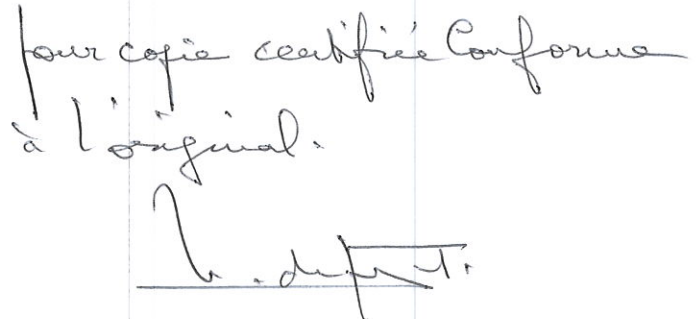 pour copie certifiée Conforme
à l'original.